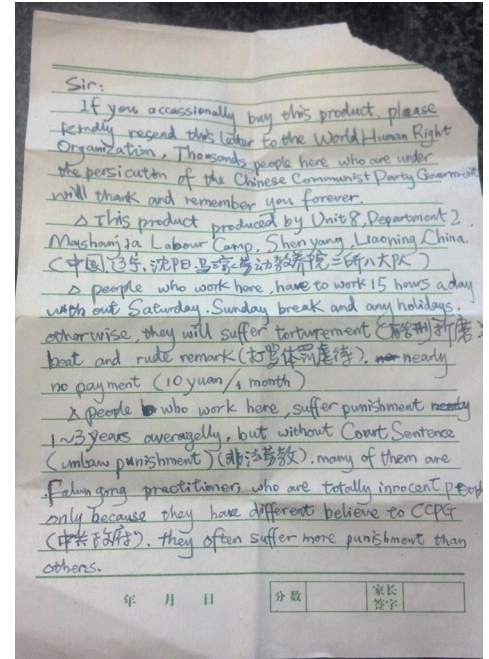 Sir:
If you occassionally buy this product, please
kindly resend this letter to the World Human Right
Organization. Thousands people here who are under
the persicution of the Chinese Communist Party Government
will thank and remember you forever.
This product produced by Unit 8, Department 2,
Mashanjia Labour Camp, Shenyang, Liaoning, China.
(中国,辽宁,沈阳,马三家劳动教养院二所八大队)
people who work here, have to work 15 hours a day
with out Saturday, Sunday break and any holidays,
otherwise, they will suffer torturement (酷刑折磨)
beat and rude remark (打骂体罚虐待), nearly
no payment (10 yuan/1 month)
people who work here, suffer punishment
1~3 years averagelly, but without Court Sentence
(unlaw punishment) (非法劳教). many of them are
Falun gong practitioner, who are totally innocent people
only because they have different believe to CCPG
(中共政府). they often suffer more punishment than
others.
年 月 日 分数 家长签字